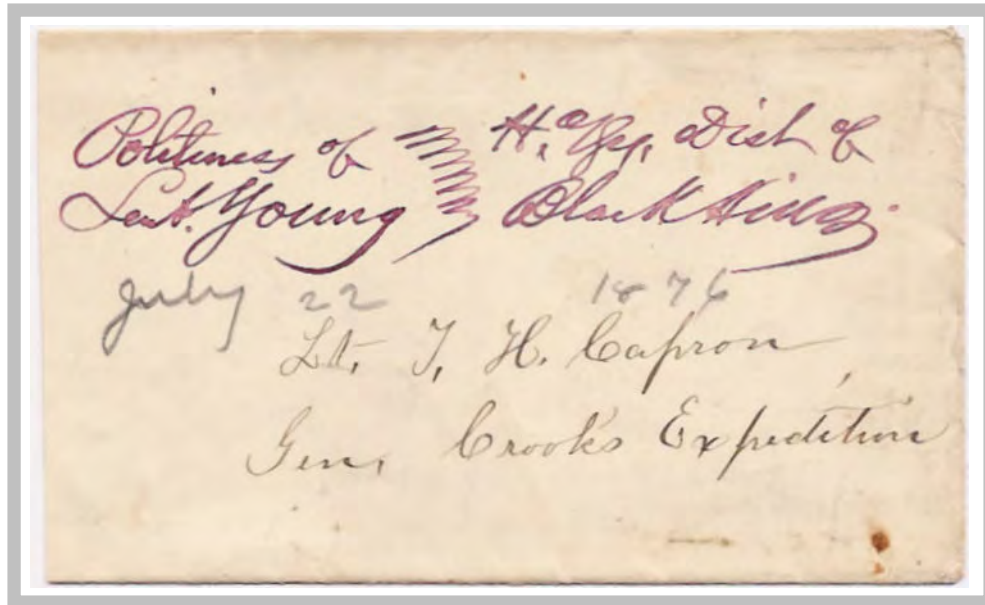 Politeness of
Leut. Young
H. Qrs. Dist of
Black Hills.
July 22 1876
Lt. T. H. Capron
Gen. Crook's Expedition